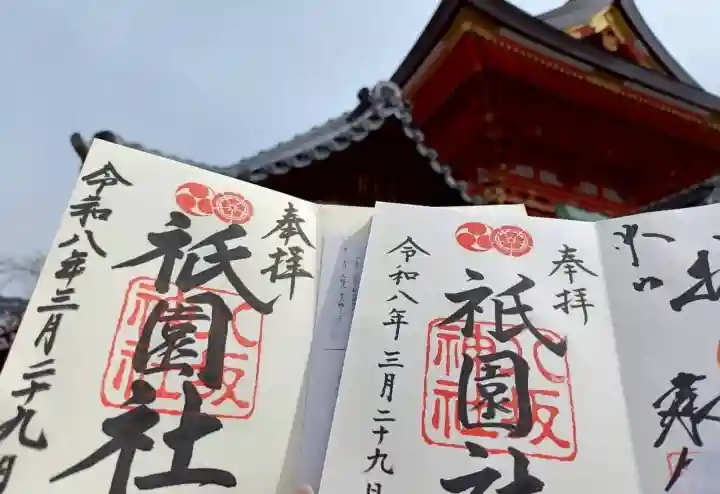 奉拝
祇園社
八坂神社
令和八年三月二十九日
奉拝
祇園社
八坂神社
令和八年三月二十九日